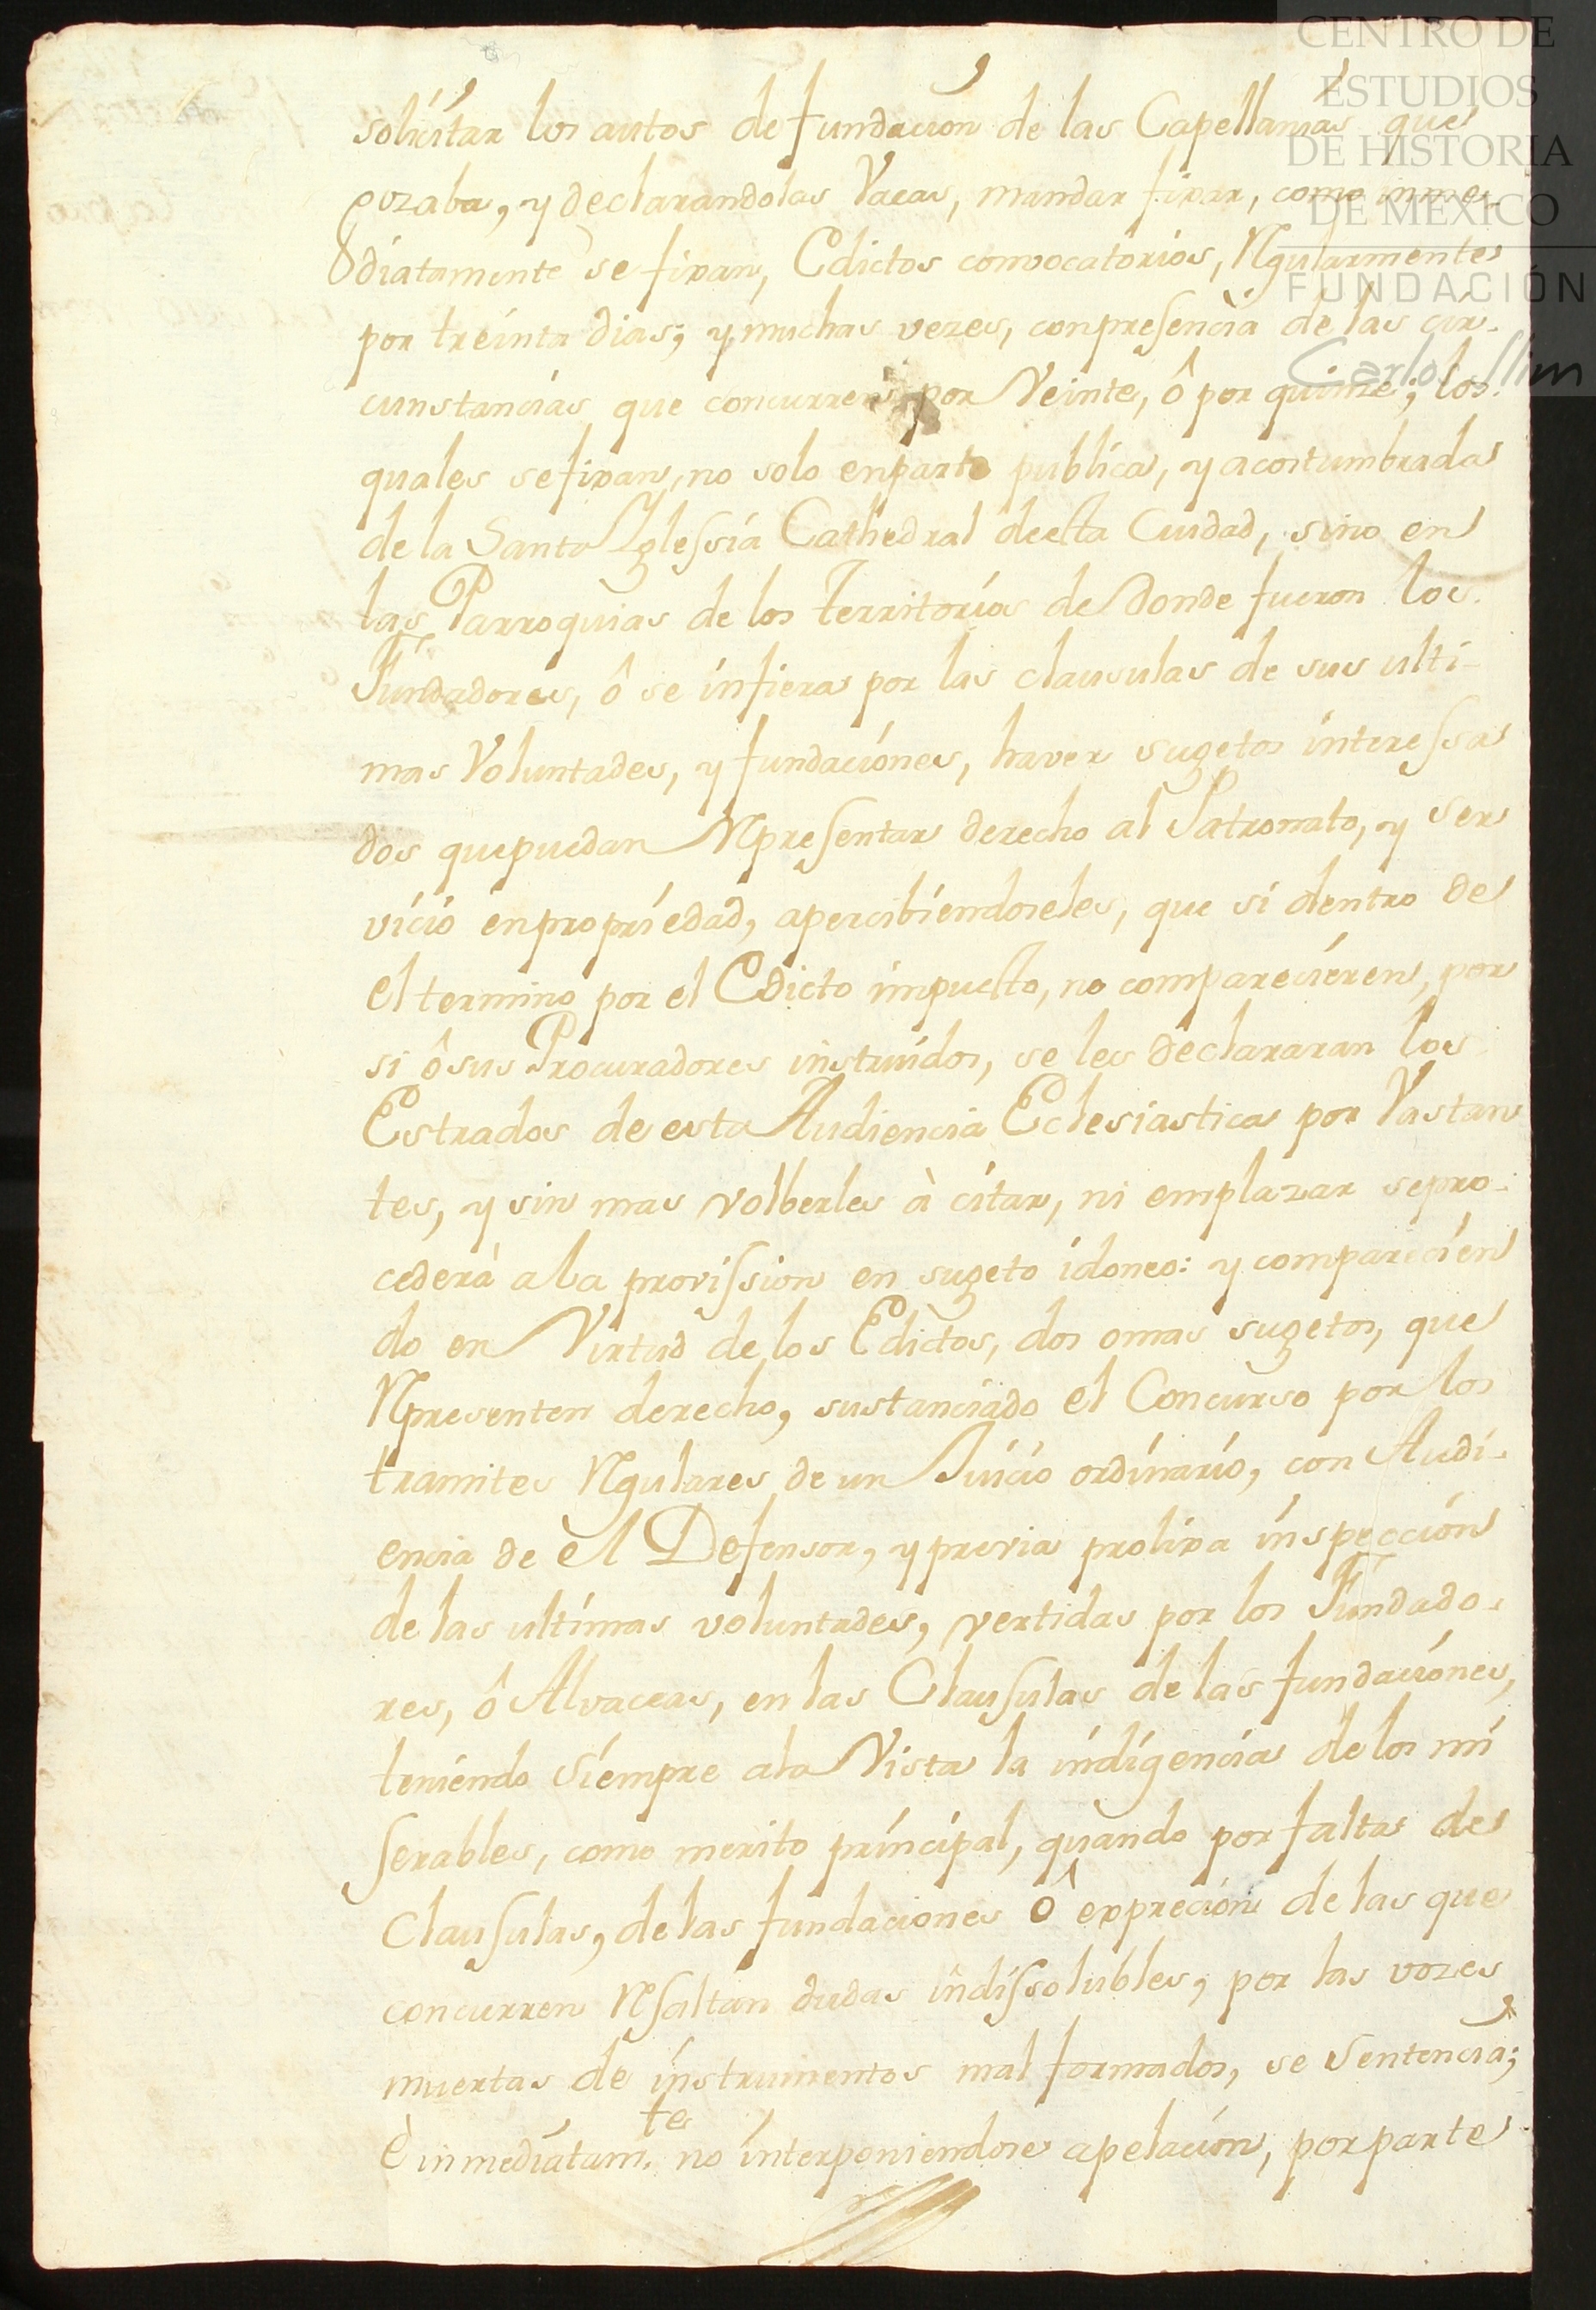 CENTRO DE
ESTUDIOS
DE HISTORIA
DE MÉXICO
FUNDACIÓN
Carlos Slim
solicitar los autos de fundacion de las Capellanias que
gozaba, y declarandolas Vacas, mandar fixar, como inme-
diatamente se fixan, Edictos convocatorios, Rgularmente
por treinta dias; y muchas vezes, con presencia de las cir-
cunstancias que concurren por Veinte, ô por quinze; los
quales se fixan, no solo en parte publica, y acostumbrada
de la Santa Iglessia Cathedral de esta Ciudad, sino en
las Parroquias de los territorios de donde fueron los
Fundadores, ô se infiera por las clausulas de sus ulti-
mas Voluntades, y fundaciones, haver sugetos interessa
dos que puedan Rpresentar derecho al Patronato, y ser
vicio en propriedad, apercibiendoseles, que si dentro de
el termino por el Edicto impuesto, no comparecieren, por
si ô sus Procuradores instruidos, se les declararan los
Estrados de esta Audiencia Eclesiastica por Vastan
tes, y sin mas volberles à citar, ni emplazar se pro-
cederà a la provission en sugeto idoneo: y comparecien
do en Virtud de los Edictos, dos o mas sugetos, que
Rpresenten derecho, sustanciado el Concurso por los
tramites Rgulares de un Juicio ordinario, con Audi-
encia de el Defensor, y previa prolixa inspeccion
de las ultimas voluntades, vertidas por los Fundado-
res, ô Alvaceas, en las Clausulas de las fundaciones,
teniendo siempre a la Vista la indigencia de los mi
serables, como merito principal, quando por falta de
Clausulas, de las fundaciones ô exprecion de las que
concurren Rsaltan dudas indissolubles, por las vozes
muertas de instrumentos mal formados, se Sentencia;
è inmediatam.te no interponiendose apelacion, por parte